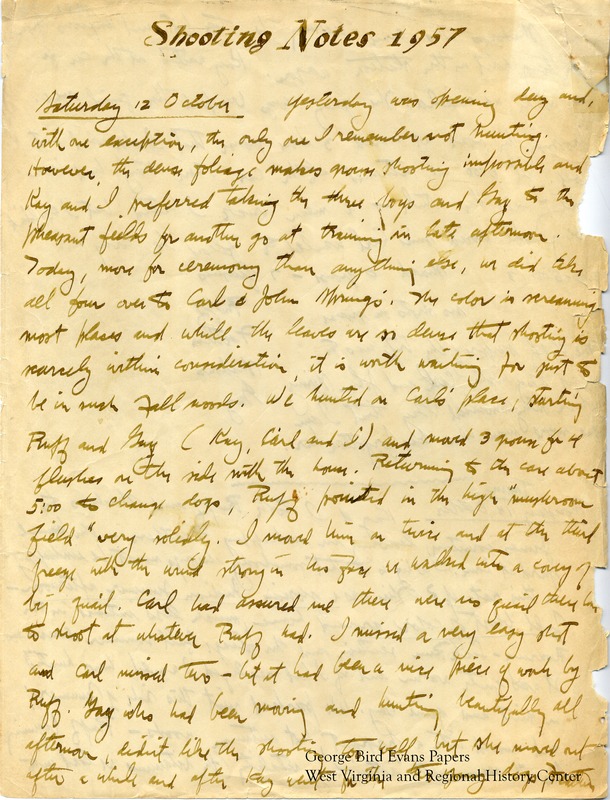 Shooting Notes 1957
Saturday 12 October yesterday was opening day and,
with one exception, the only one I remember not hunting.
However, the dense foliage makes grouse shooting impossible and
Kay and I preferred taking the three boys and Gay to the
pheasant fields for another go at training in late afternoon.
Today, more for ceremony than anything else, we did take
all four over to Carl & John The color is screaming
most places and while the leaves are so dense that shooting is
scarcely within consideration, it is worth waiting for just to
be in such Fall woods. We hunted on Carl's place, starting
Ruff and Gay (Kay, Carl and I) and moved 3 grouse for 4
flushes on the side with the house. Returning to the car about
5:00 to change dogs, Ruff pointed in the high "mushroom
field" very solidly. I moved him on twice and at the third
freeze with the wind strong in his face we walked into a covey of
big quail. Carl had assured me there were no quail there
to shoot at whatever Ruff had. I missed a very easy shot
and Carl missed two - but it had been a nice piece of work by
Ruff. Gay who had been moving and hunting beautifully all
afternoon, didn't like the shooting but she moved out
after a while and after Kay went
George Bird Evans Papers
West Virginia and Regional History Center